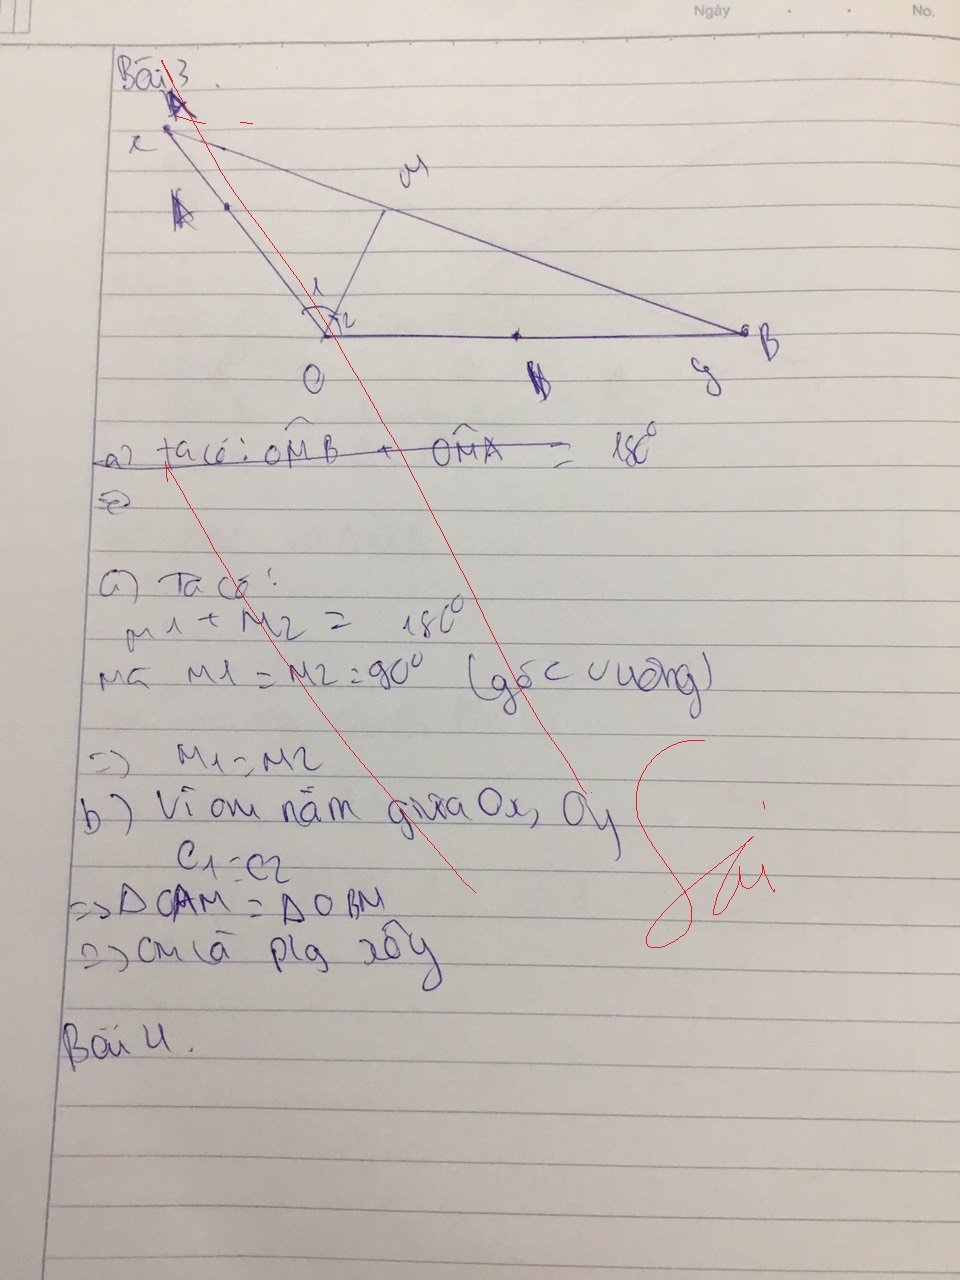 Ngày . . No.
Bài 3.
A
x
M
A
1
2
O
y
B
a) ta có: OMB + OMA = 180°
=>
a) Ta có:
M1 + M2 = 180°
Mà M1 = M2 = 90° (góc vuông)
=> M1 = M2
b) Vì OM nằm giữa Ox, Oy
O1 = O2
=> Δ OAM = Δ OBM
=> OM là plg xOy
Sai
Bài 4.